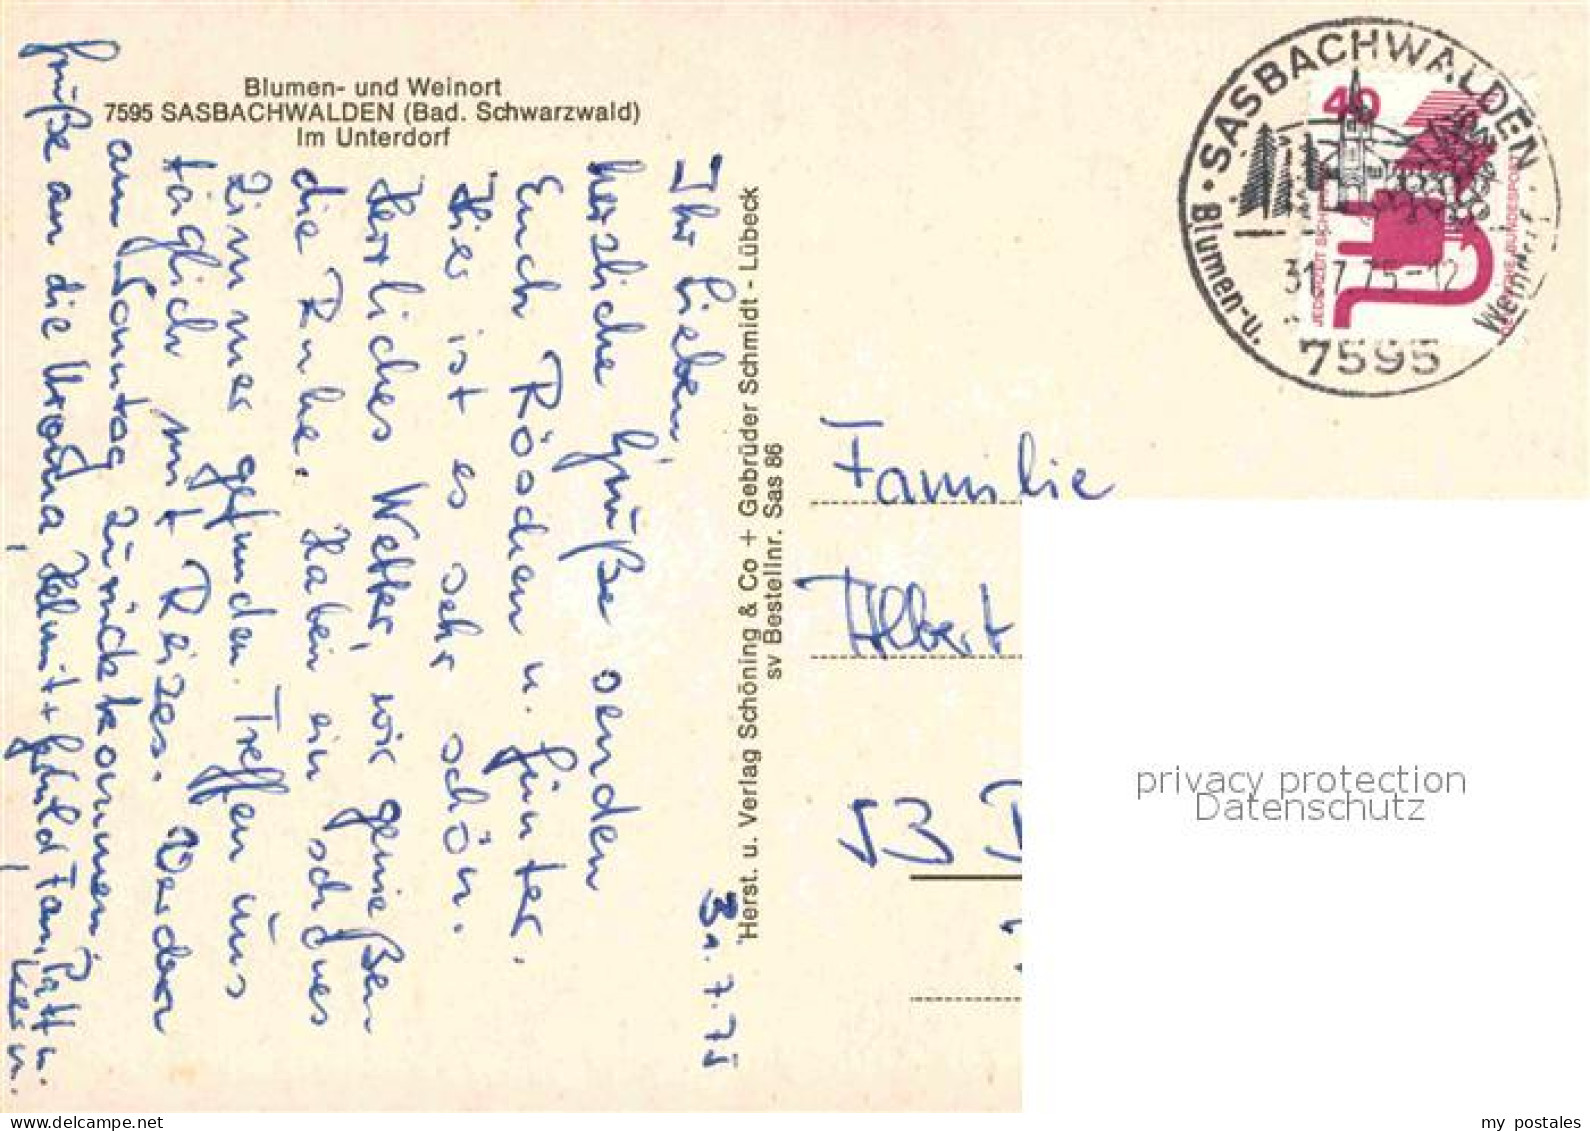 Blumen- und Weinort
7595 SASBACHWALDEN (Bad. Schwarzwald)
Im Unterdorf
30.7.75
Ihr Lieben,
herzliche Grüße senden
Euch Röschen u. Günter.
Hier ist es sehr schön.
Herrliches Wetter, wir genießen
die Ruhe. Haben ein schönes
Zimmer gefunden. Treffen uns
täglich mit Reizes. Werden
am Sonntag zurückkommen.
Grüße an die Helmut +
Herst. u. Verlag Schöning & Co + Gebrüder Schmidt - Lübeck
sv Bestellnr. Sas 86
SASBACHWALDEN
Blumen-u. Weindorf
31.7.75-12
7595
40
JEDERZEIT SICHERHEIT
DEUTSCHE BUNDESPOST
Familie
Albert
53
privacy protection
Datenschutz
my postales